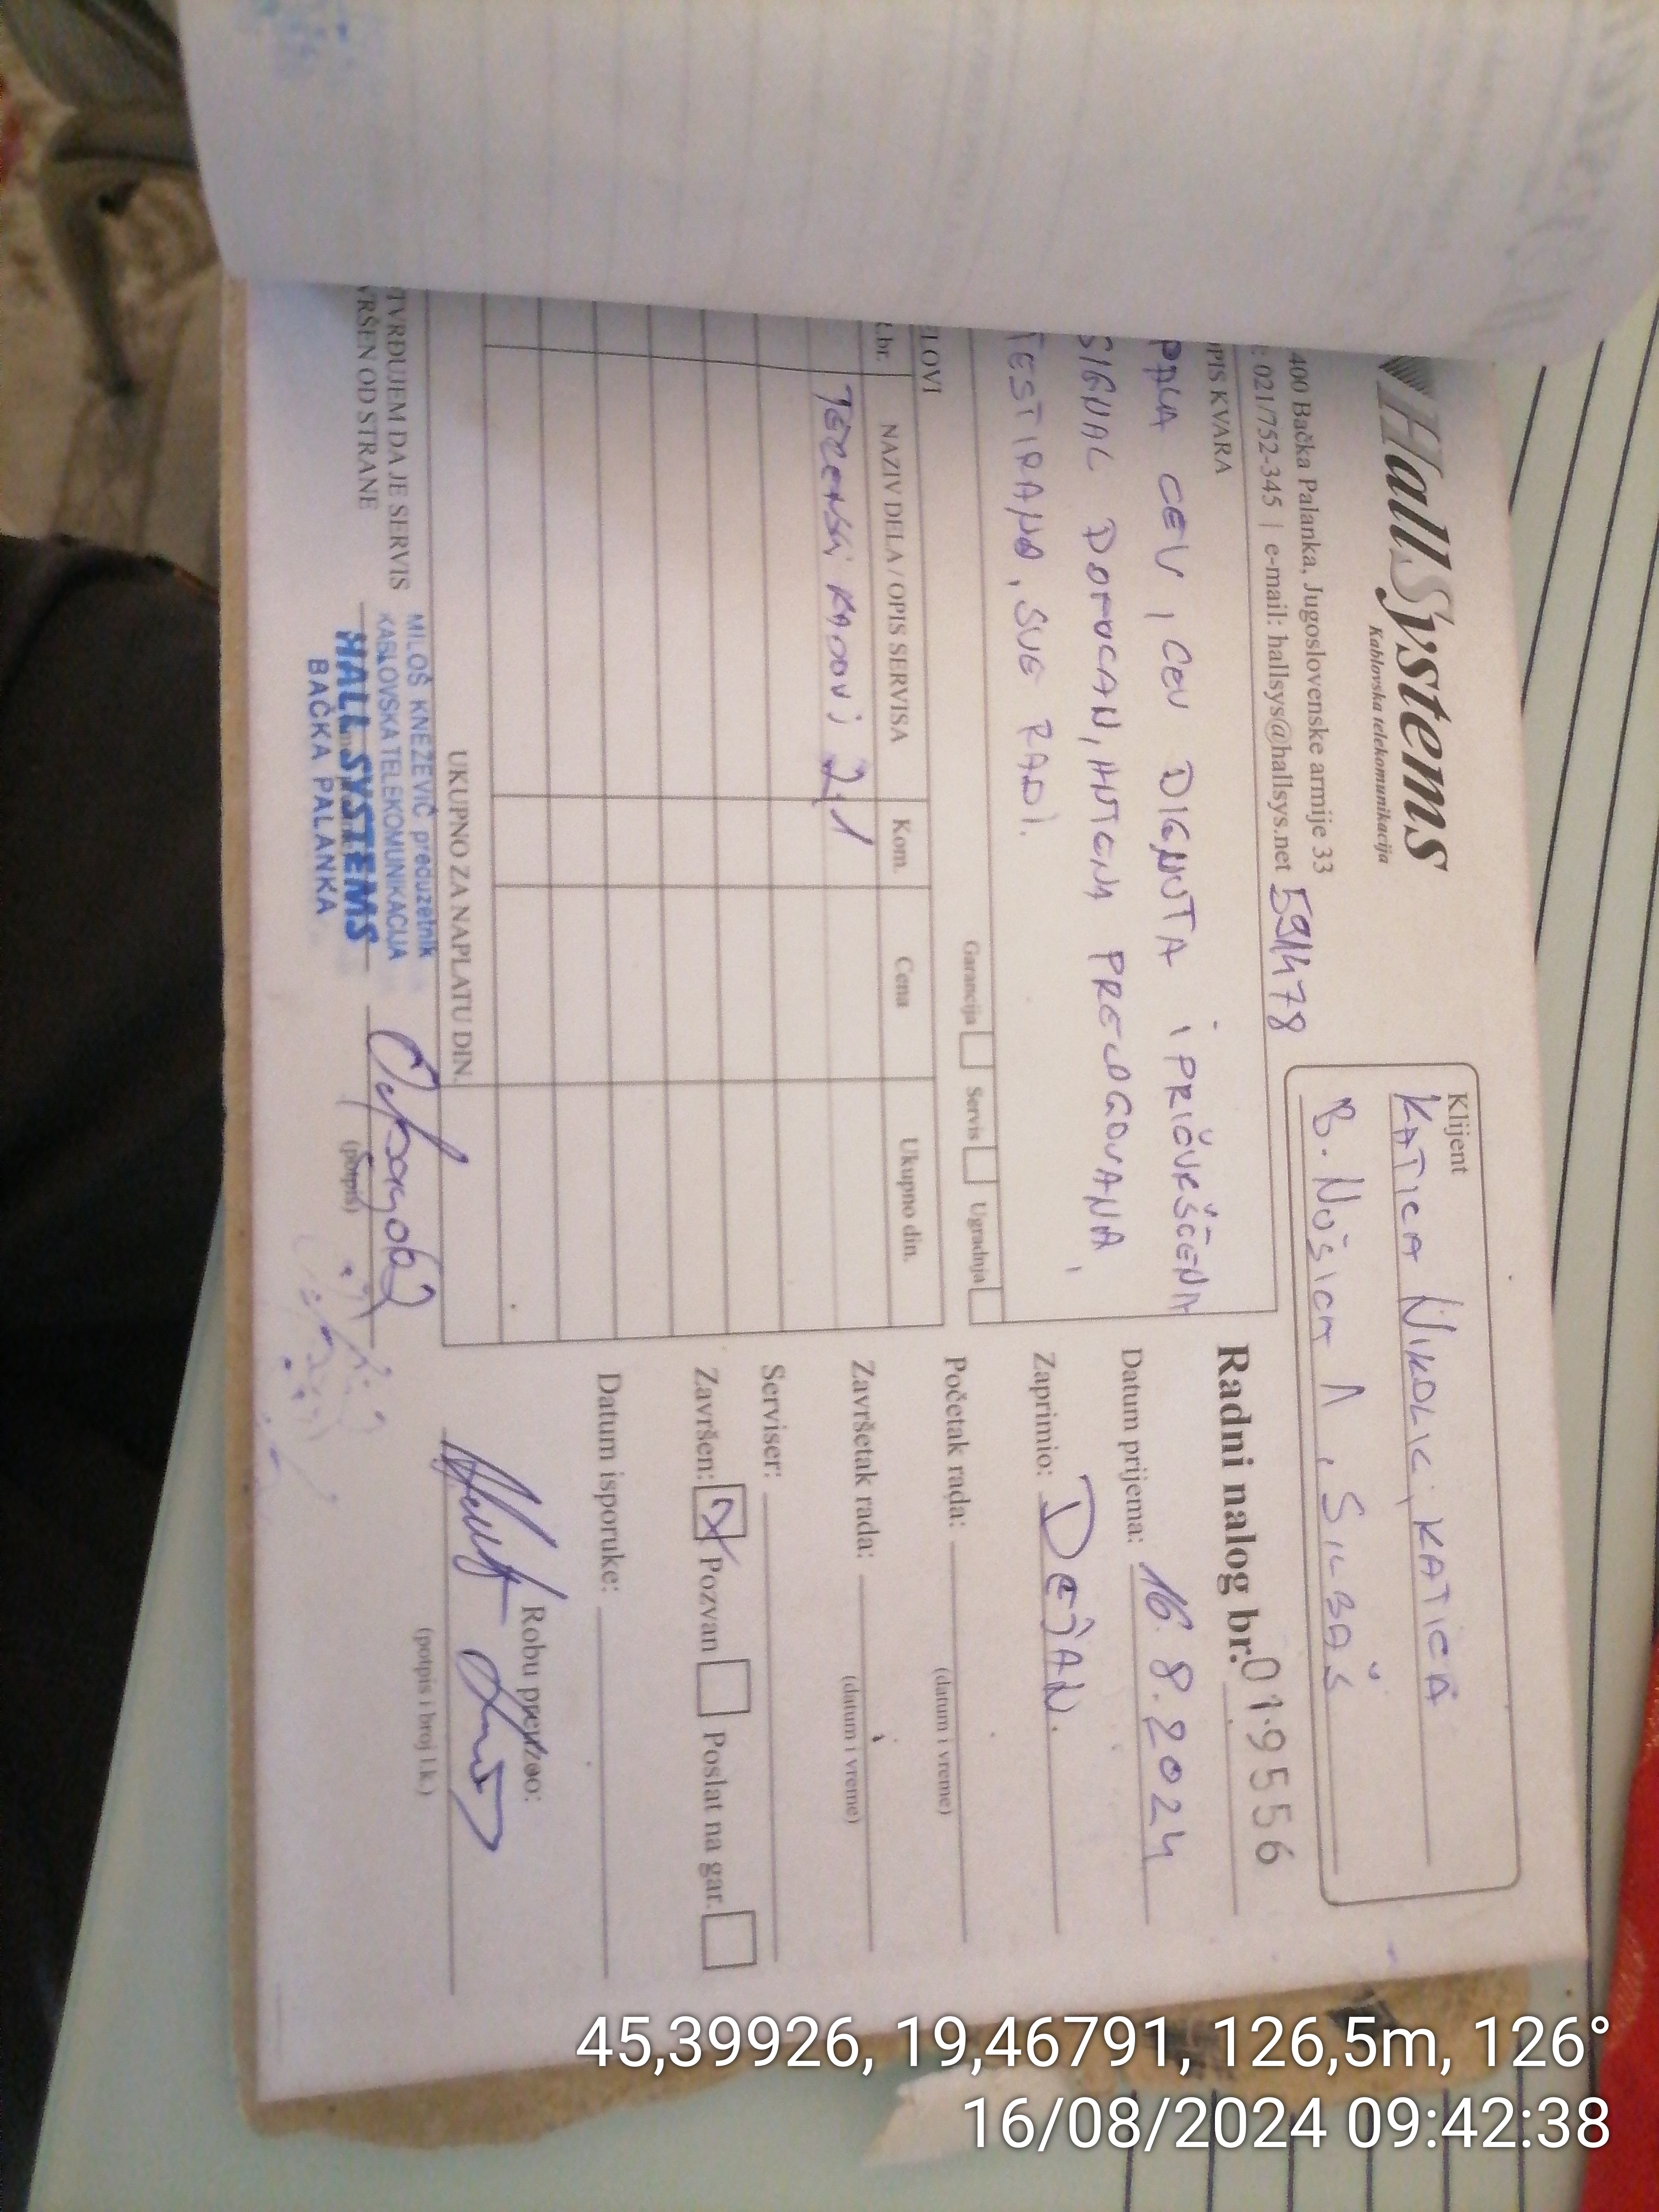 HallSystems
Kablovska telekomunikacija
400 Bačka Palanka, Jugoslovenske armije 33
: 021/752-345 | e-mail: hallsys@hallsys.net 591478
Klijent
KATICA NIKOLIC, KATICA
B. NUŠICA 1, SILBAŠ
OPIS KVARA
PALA CEV, CEV DIGNUTA I PRIČVRŠČENA
SIGNAL DOTUCAN, ANTENA PRELOGOVANA,
TESTIRANO, SVE RADI.
Garancija Servis Ugradnja
Radni nalog br. 019556
Datum prijema: 16.8.2024
Zaprimio: DEJAN.
Početak rada:
(datum i vreme)
Završetak rada:
(datum i vreme)
Serviser:
Završen: Pozvan Poslat na gar.
Datum isporuke:
Robu preuzeo:
(potpis i broj l.k.)
LOVI
.br. NAZIV DELA / OPIS SERVISA Kom. Cena Ukupno din.
TERENSKI RADOVI 2,1
UKUPNO ZA NAPLATU DIN.
TVRĐUJEM DA JE SERVIS
VRŠEN OD STRANE
MILOŠ KNEŽEVIĆ preduzetnik
KABLOVSKA TELEKOMUNIKACIJA
HALL SYSTEMS
BAČKA PALANKA
(potpis)
45,39926, 19,46791, 126,5m, 126°
16/08/2024 09:42:38